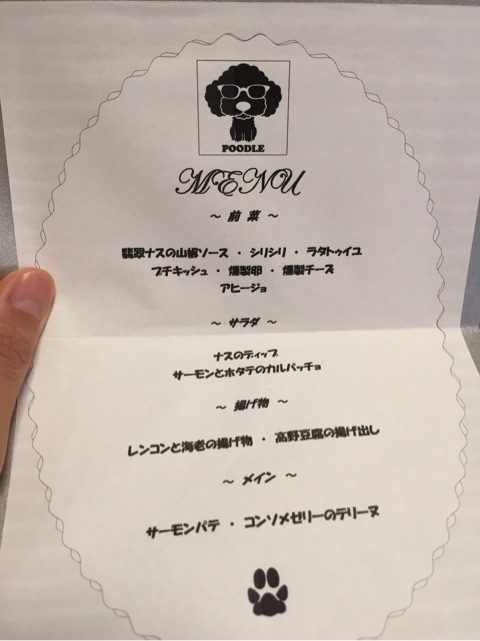 POODLE
MENU
～ 前 菜 ～
翡翠ナスの山椒ソース ・ シリシリ ・ ラタトゥイユ
プチキッシュ ・ 燻製卵 ・ 燻製チーズ
アヒージョ
～ サラダ ～
ナスのディップ
サーモンとホタテのカルパッチョ
～ 揚げ物 ～
レンコンと海老の揚げ物 ・ 高野豆腐の揚げ出し
～ メイン ～
サーモンパテ ・ コンソメゼリーのテリーヌ